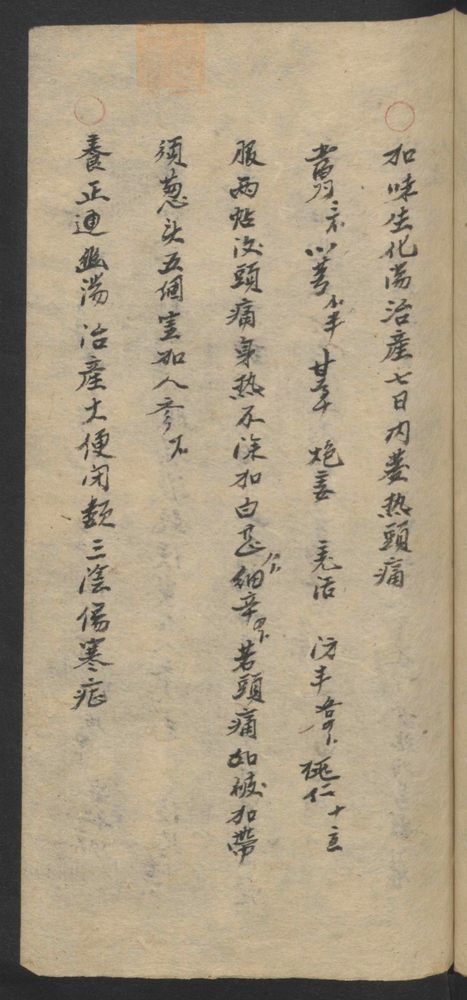 加味生化湯治產七日内發熱頭痛
當归 川芎 甘草 炮姜 羌活 防丰 桃仁十
服兩帖後頭痛身熱不除加白芷 細辛 若頭痛如破加帶
須葱头五個 加人参
養正通幽湯治產大便闭類三陰傷寒症